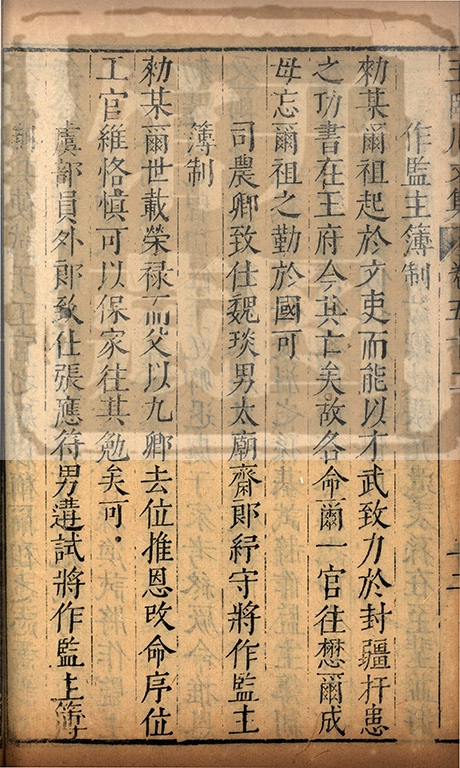 王臨川文集 卷五十二 十二
作監主簿制
勑某爾祖起於文吏而能以才武致力於封疆扞患
之功書在王府今其亡矣故各命爾一官往懋爾成
毋忘爾祖之勤於國可
司農卿致仕魏琰男太廟齋郎紓守將作監主
簿制
勑某爾世載榮祿而父以九卿去位推恩改命序位
工官維恪慎可以保家往其勉矣可
虞部員外郎致仕張應符男遘試將作監主簿